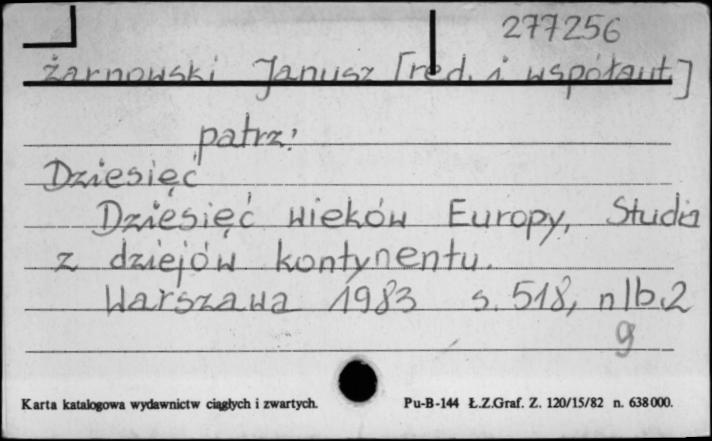 277256
Żarnowski Janusz [red. i współaut.]
patrz:
Dziesięć
Dziesięć wieków Europy, Studia
z dziejów kontynentu.
Warszawa 1983 s. 518, nlb.2
g
Karta katalogowa wydawnictw ciągłych i zwartych. Pu-B-144 Ł.Z.Graf. Z. 120/15/82 n. 638000.